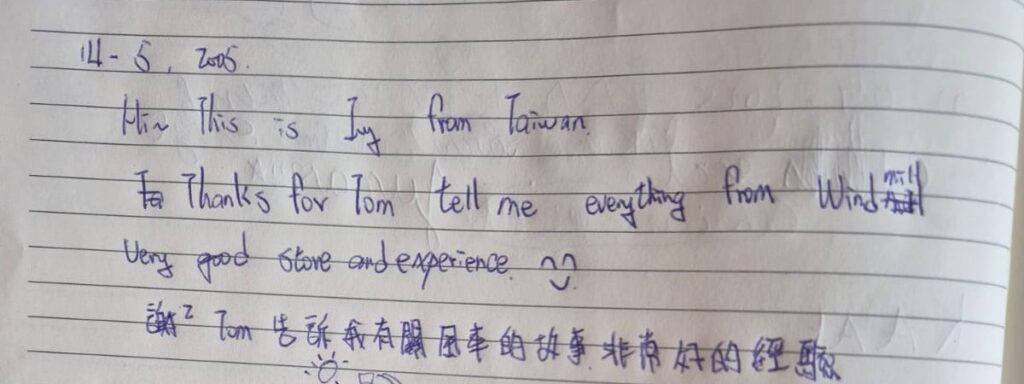 14-5, 2005.
Hi~ This is Ivy from Taiwan.
Thanks for Tom tell me everything from Windmill
Very good store and experience.
謝2 Tom 告訴我有關風車的故事.非常好的經驗